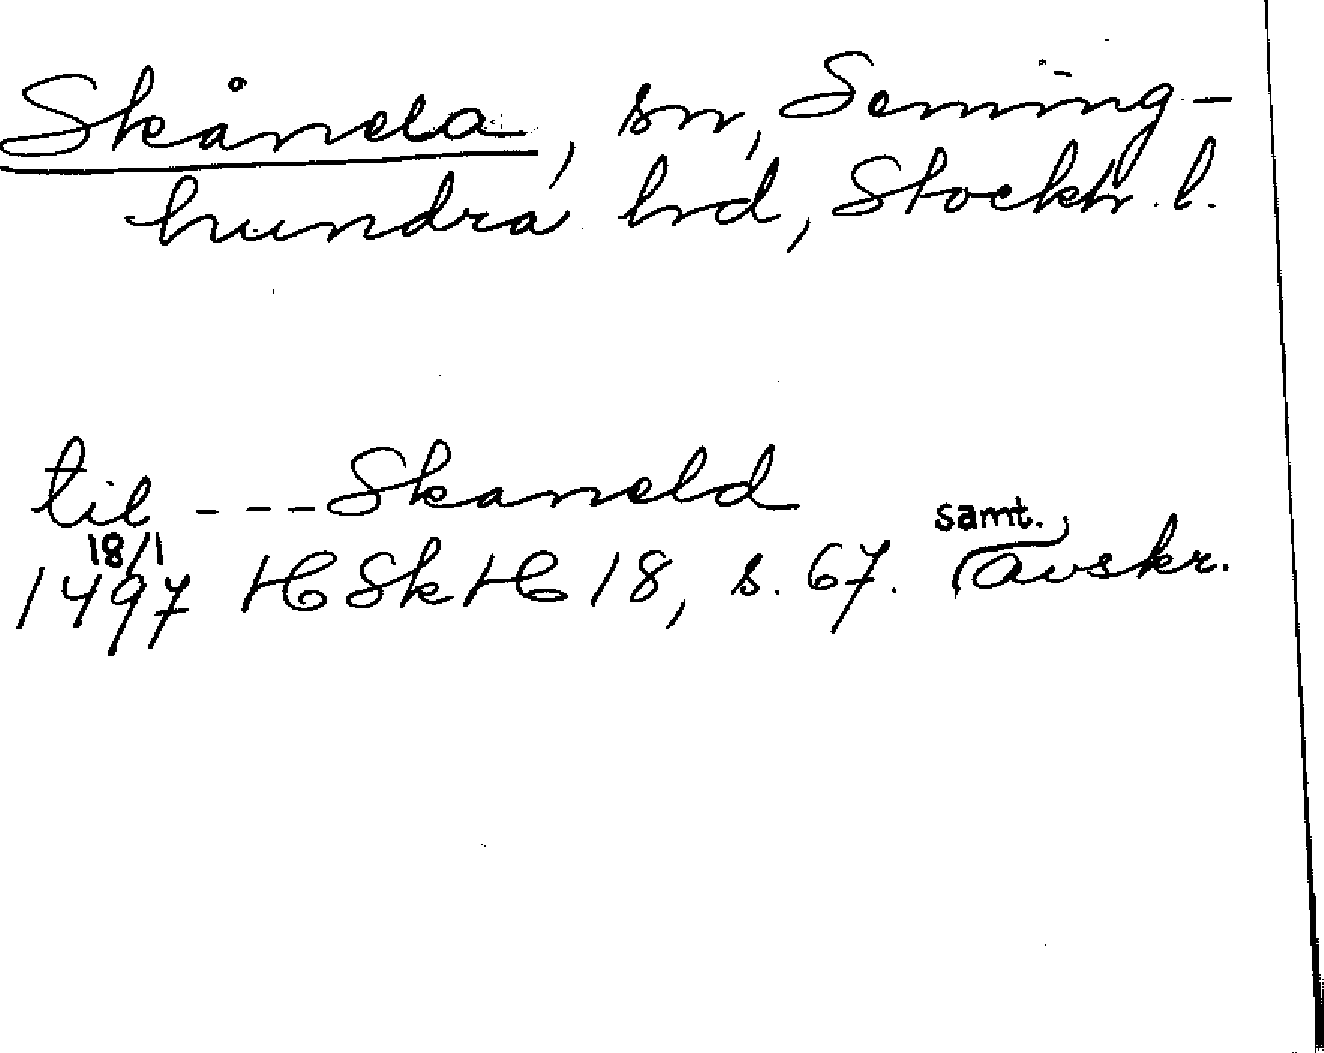 Skånela, sn, Seming-
hundra hrd, Stockh. l.
til --- Skaneld
18/1
1497 HSkH 18, s. 67. samt. avskr.